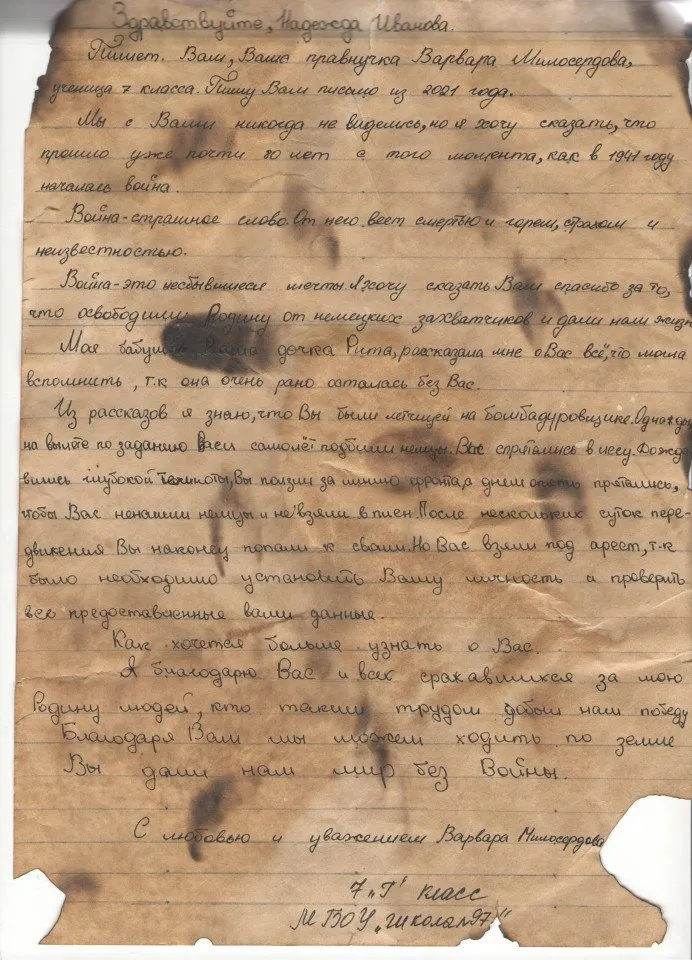 Здравствуйте, Надежда Иванова.
Пишет. Вам, Ваша правнучка Варвара Милосердова,
ученица 7 класса. Пишу Вам письмо из 2021 года.
Мы с Вами никогда не виделись, но я хочу сказать, что
прошло уже почти 80 лет с того момента, как в 1941 году
началась война.
Война-страшное слово. От него веет смертью и горем, страхом и
неизвестностью.
Война-это несбывшиеся мечты. Я хочу сказать Вам спасибо за то,
что освободили Родину от немецких захватчиков и дали нам жизнь
Моя бабушка Ваша дочка Рита, рассказала мне о Вас всё, что могла
вспомнить, т.к она очень рано осталась без Вас.
Из рассказов я знаю, что Вы были летчицей на бомбадуровщике. Однажды
на вылете по заданию Ваш самолёт подбили немцы. Вы спрятались в лесу. Дожда-
вшись глубокой темноты, Вы ползли за линию фронта, а днем опять прятались,
чтобы Вас ненашли немцы и не взяли в плен. После нескольких суток пере-
движения Вы наконец попали к своим. Но Вас взяли под арест, т.к
было необходимо установить Вашу личность и проверить
все предоставленные вами данные.
Как хочется больше узнать о Вас.
Я благодарю Вас и всех сражавшихся за мою
Родину людей, кто таким трудом добыл нам победу
Благодаря Вам мы можем ходить по земле
Вы дали нам мир без Войны.
С любовью и уважением Варвара Милосердова
7 „Г" класс
МБОУ „Школа №97"